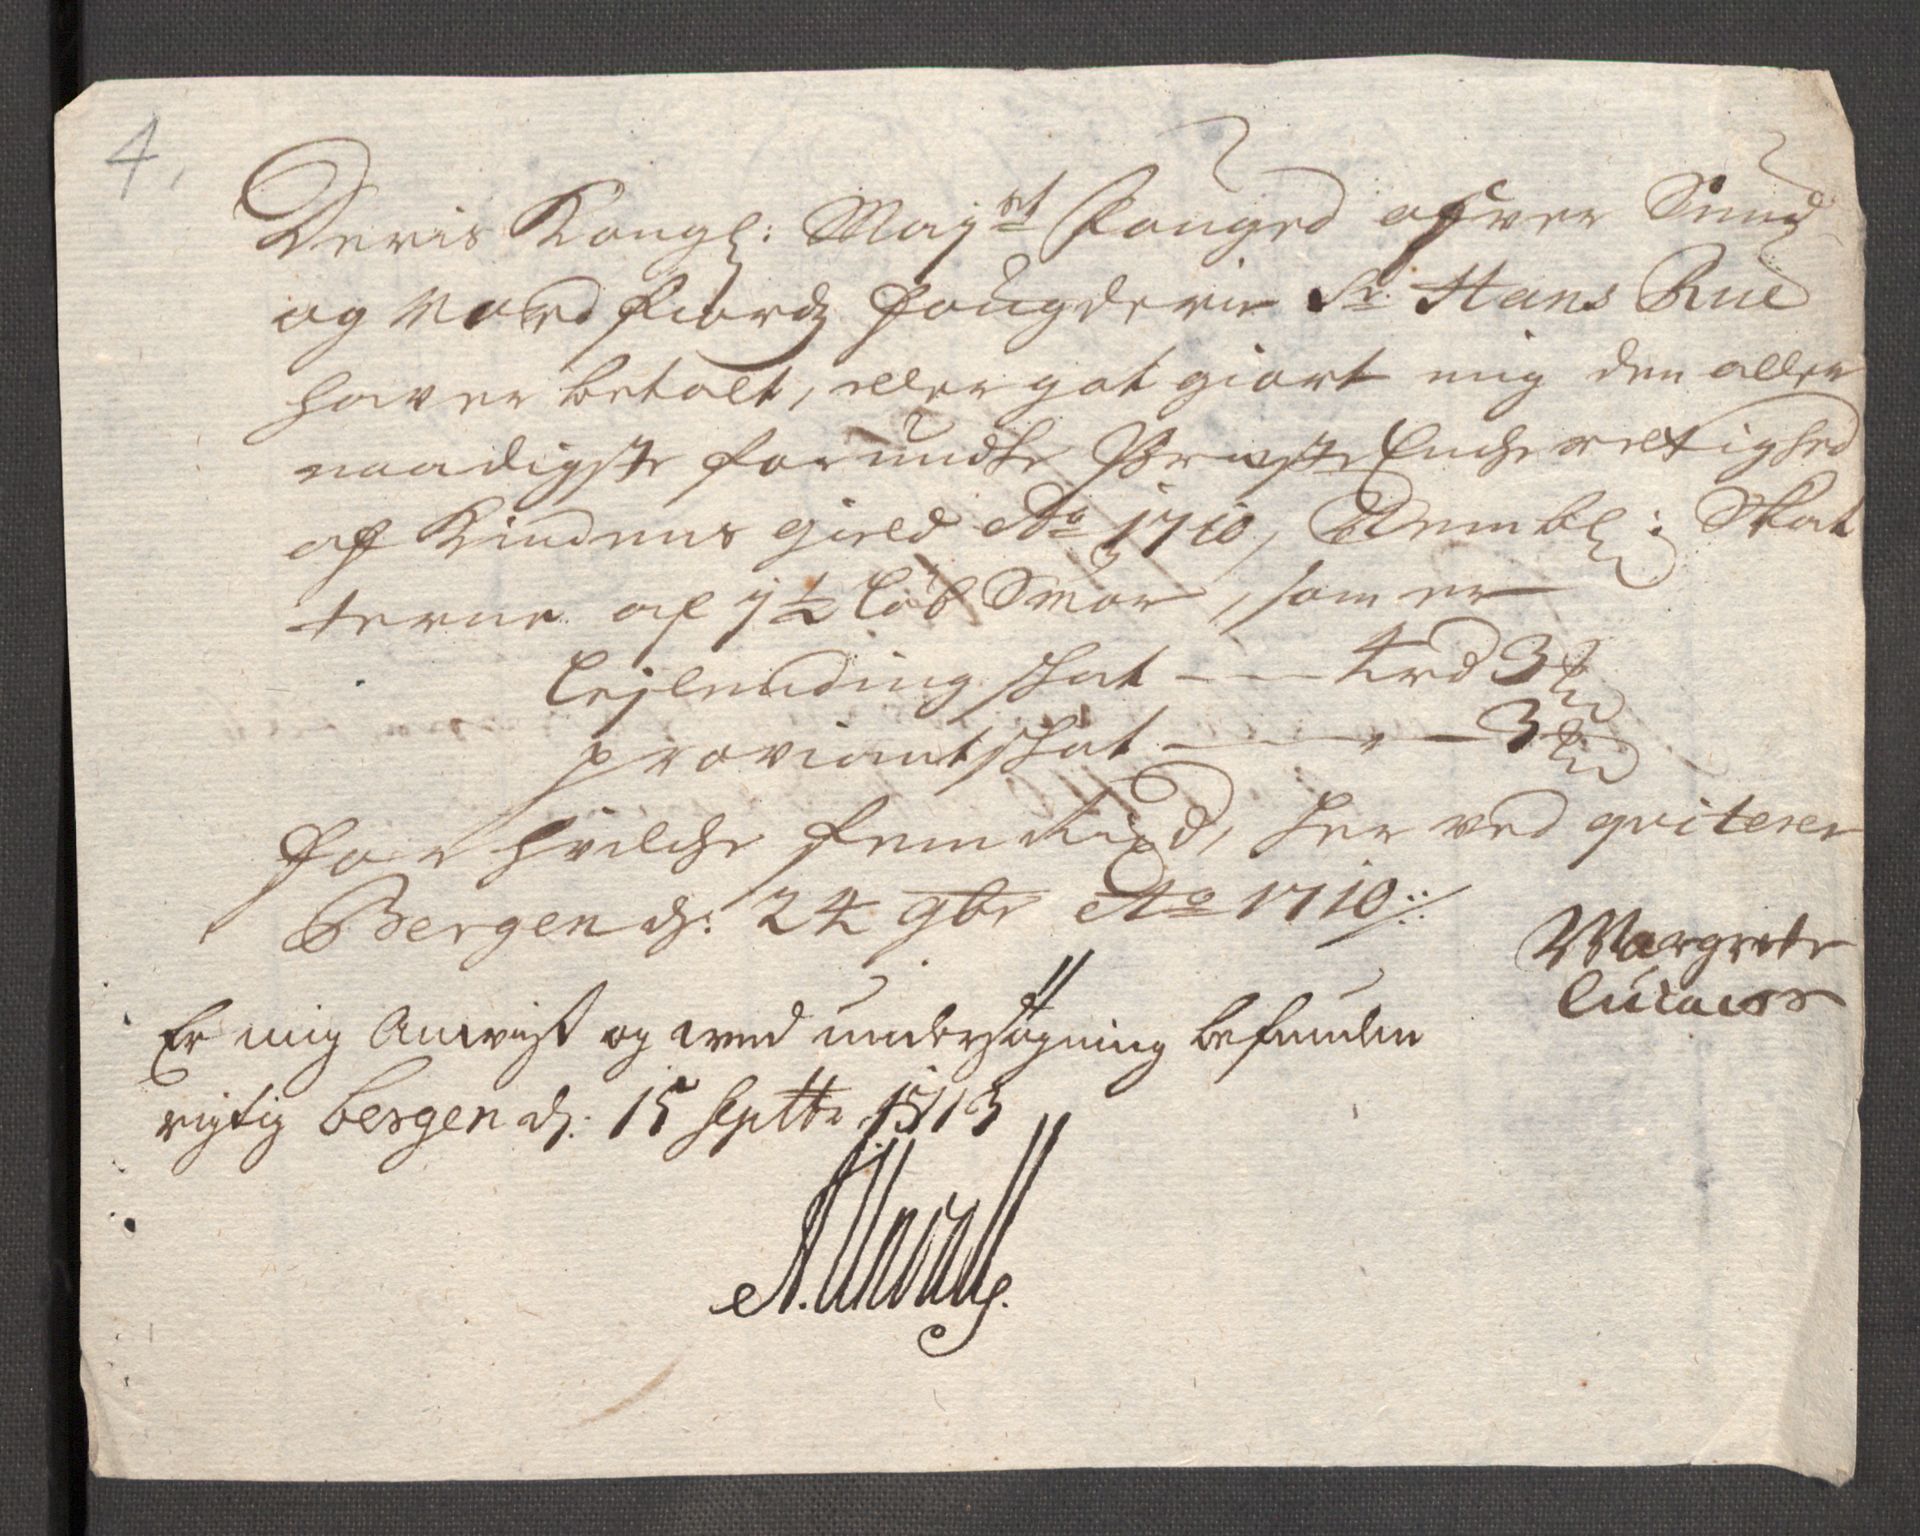 4.
Deris Kongl: Mayst Fouged ofver Sund
og Nordfiordz Fougderie Sr. Hans Rue
haver betalt, eller got giort mig den aller
naadigste forundte Præste Encherettighed
af Kindens gield Ao 1710, Nembl: Skat
terne af 7 1/2 Løb Smør, som er
Lejlending skat - 4 rd 3
proviantskat - 3
for hvilche fem Rixd, her ved qviterer
Bergen d: 24 9br Ao 1710 ./.
Margrete
Er mig Anvist og ved undersøgning befunden
rigtig Bergen d: 15 Septbr 1713